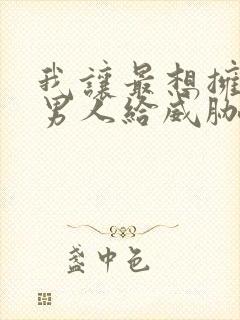 我讓最想擁
男人給威脅
盞中色